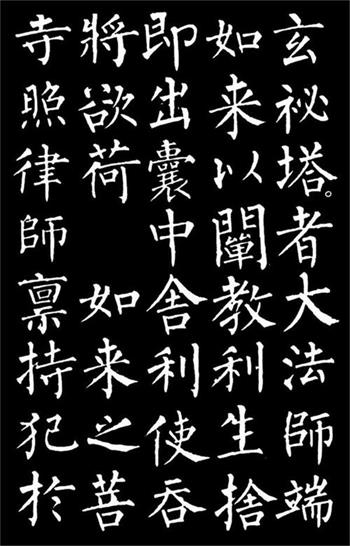 玄祕塔。者大法師端
如来以闡教利生捨
即出囊中舍利使吞
將欲荷 如来之菩
寺照律師稟持犯於